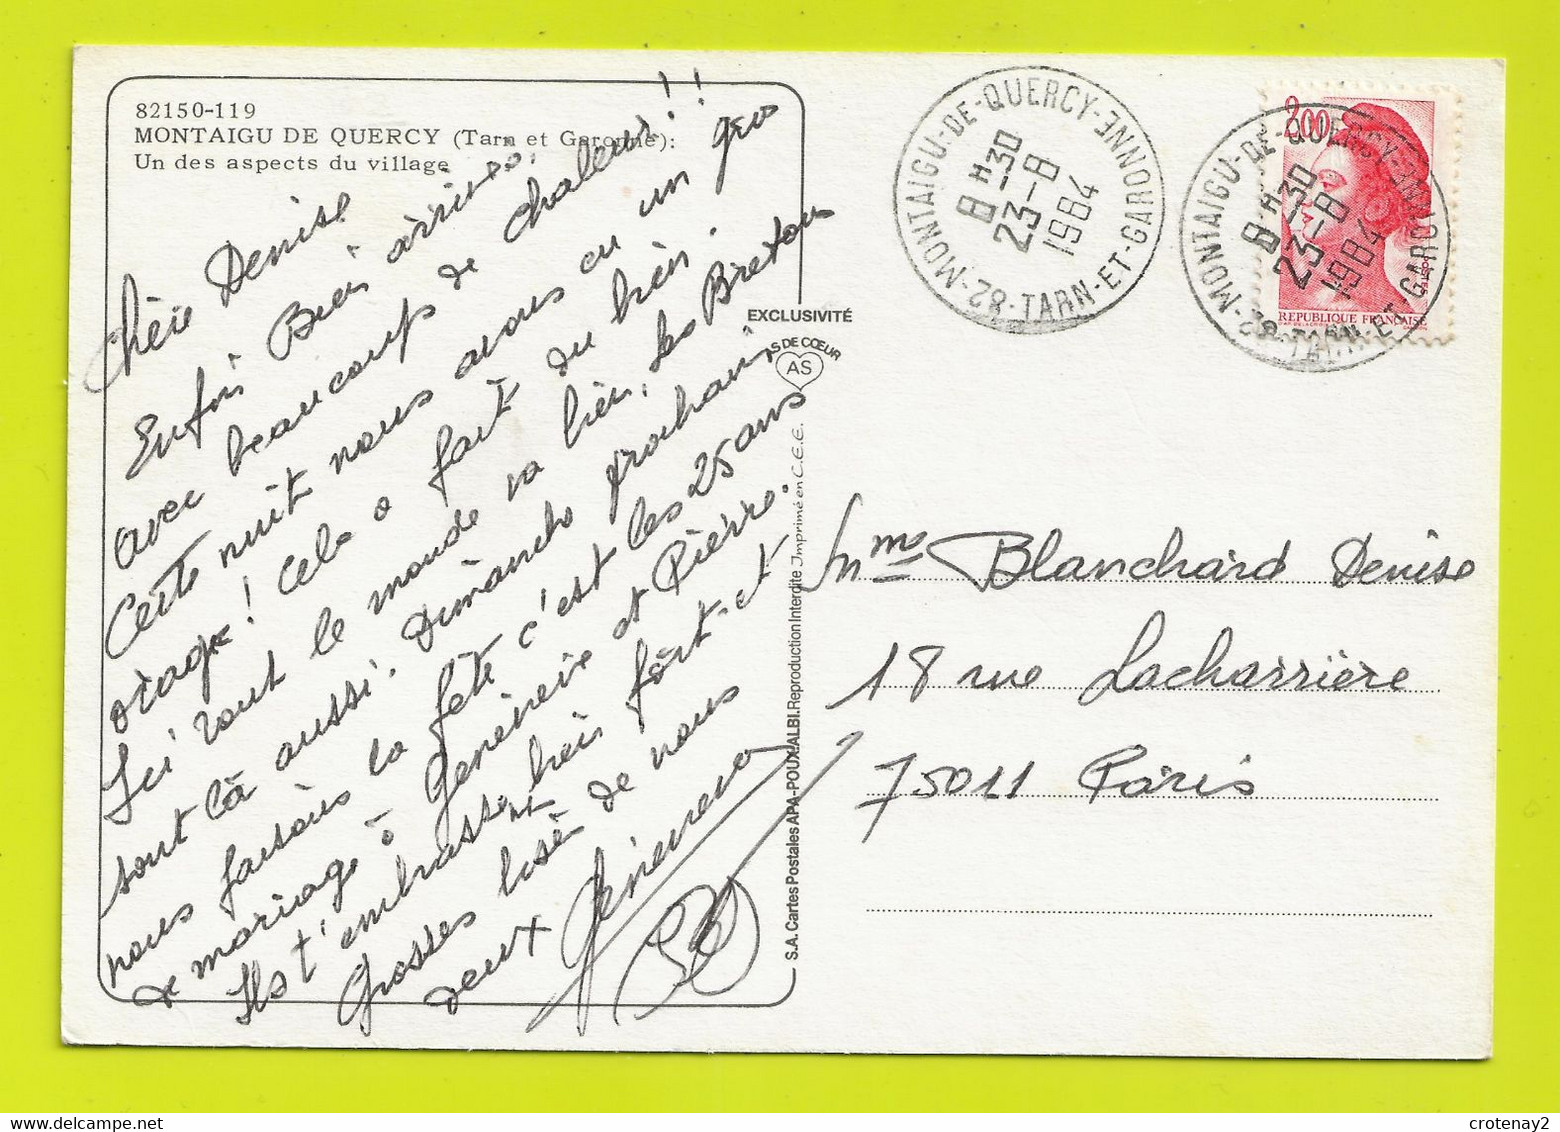 82150-119
MONTAIGU DE QUERCY (Tarn et Garonne):
Un des aspects du village
Chère Denise
Enfin Bien arrivés.
avec beaucoup de chaleur!!
Cette nuit nous avons eu un gros
orage! Cela a fait du bien.
Ici tout le monde va bien, les Bretons
sont là aussi. Dimanche prochain
nous faisons la fête c'est les 25 ans
de mariage à Geneviève et Pierre.
Ils t'embrasse bien fort. et
Grosses bises de nous
deux Geneviève
EXCLUSIVITÉ
AS DE CŒUR
AS
S.A. Cartes Postales APA-POUX ALBI. Reproduction Interdite Imprimé en C.E.E.
82-MONTAIGU-DE-QUERCY-TARN-ET-GARONNE
8 H 30
23-8
1984
2,00
REPUBLIQUE FRANÇAISE
82-MONTAIGU-DE-QUERCY-TARN-ET-GARONNE
8 H 30
23-8
1984
Mme Blanchard Denise
18 rue Lacharrière
75011 Paris
crotenay2